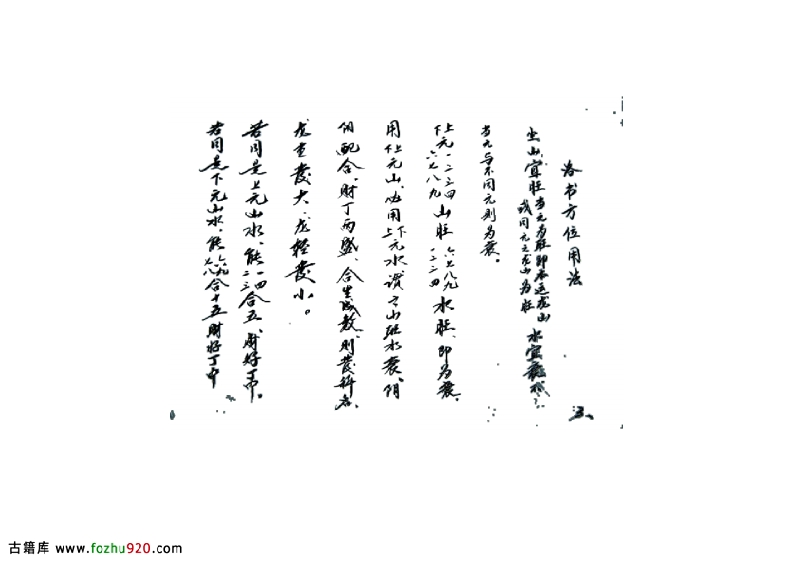 洛书方位用法
坐山宜旺 当元为旺即本运龙山 或同元之龙山为旺 水宜衰
当元与不同元则为衰。
上元一二三四山旺 六七八九水旺、即为衰。
下 六七八九 一二三四
用上元山、必用下元水 谓之山旺水衰、阴
下 上
阳配合、财丁两盛、合生成数、则发科名。
龙重发大、龙轻发小。
若同是上元山水、能一四合五、财好丁中。
二三
若同是下元山水、能六九合十五财好丁中
七八
三、
古籍库 www.fozhu920.com